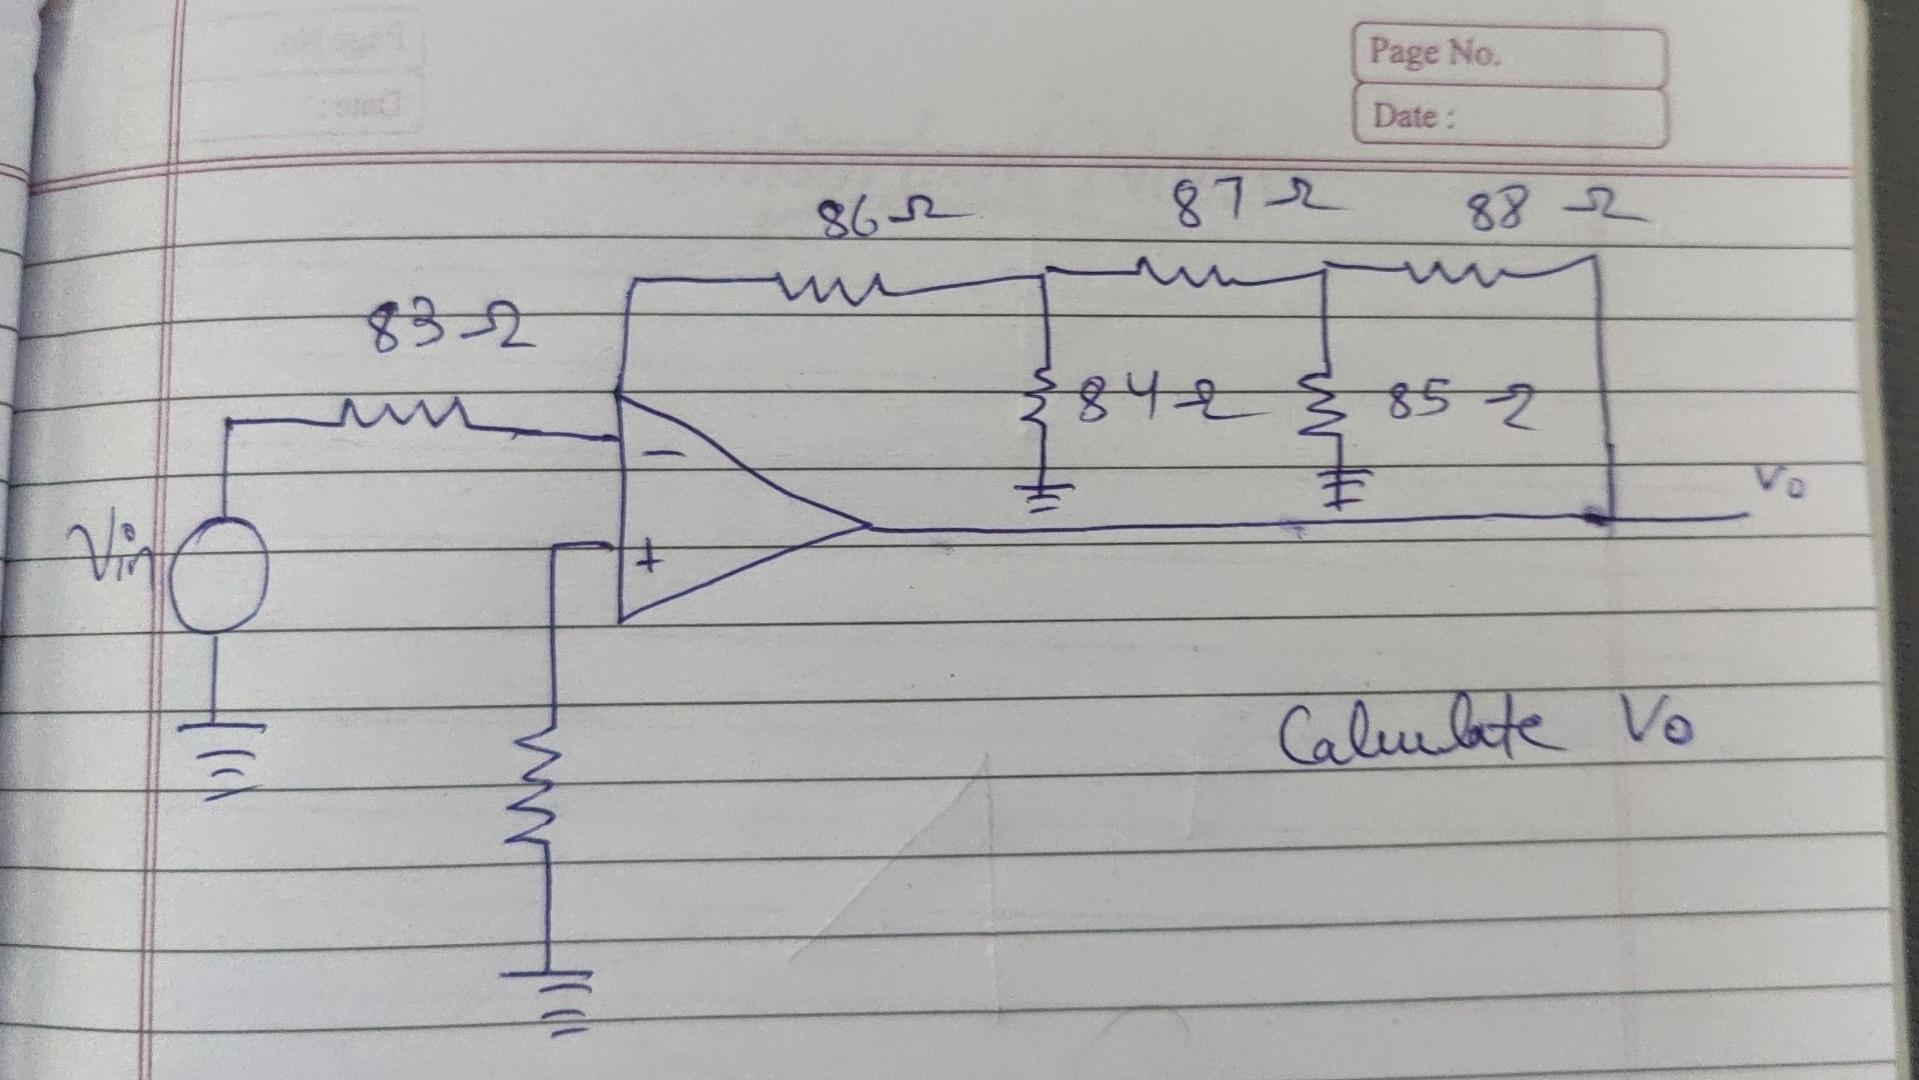 Page No.
Date :
86 Ω 87 Ω 88 Ω
83 Ω
84 Ω 85 Ω
Vo
Vin
-
+
Calculate Vo